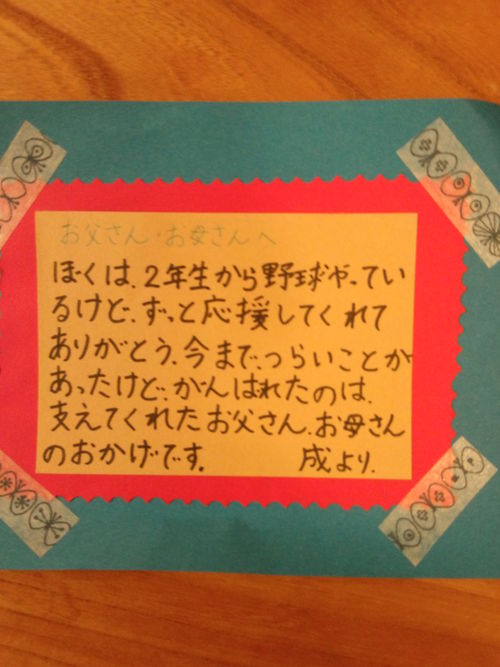 お父さん・お母さんへ
ぼくは、2年生から野球やってい
るけど、ずっと応援してくれて
ありがとう、今まで、つらいことが
あったけど、がんばれたのは、
支えてくれたお父さん、お母さん
のおかげです。 成より、